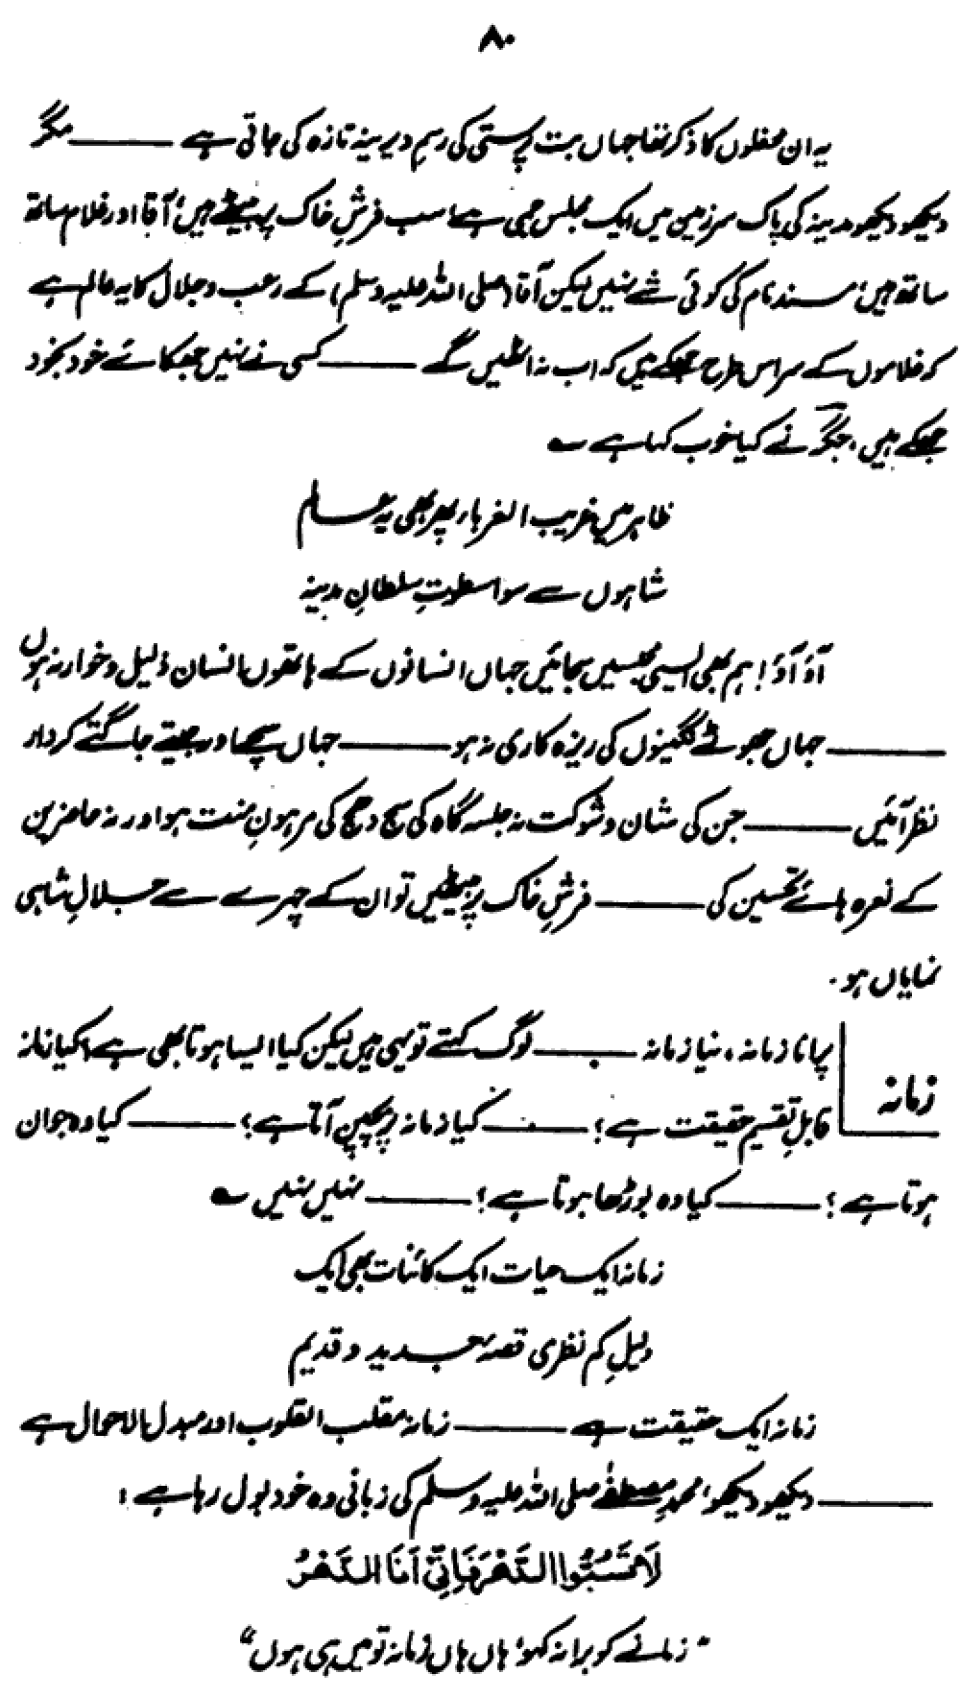 ۸۰
یہ ان محفلوں کا ذکر تھا جہاں بت پرستی کی رسمِ دیرینہ تازہ کی جاتی ہے ——— مگر
دیکھو دیکھو مدینہ کی پاک سرزمین میں ایک مجلس جمی ہے، سب فرشِ خاک پر بیٹھے ہیں، آقا اور غلام ساتھ
ساتھ ہیں، مسند نام کی کوئی شے نہیں لیکن آقا (صلی اللہ علیہ وسلم) کے رعب و جلال کا یہ عالم ہے
کہ غلاموں کے سر اس طرح جھکے ہیں کہ اب نہ اٹھیں گے ——— کسی نے نہیں جھکائے خود بخود
جھکے ہیں، جگرؔ نے کیا خوب کہا ہے ؎
ظاہر میں غریب الغرباء پھر بھی یہ عالم
شاہوں سے سوا سطوتِ سلطانِ مدینہ
آؤ آؤ! ہم بھی ایسی مجلسیں سجائیں جہاں انسانوں کے ہاتھوں انسان ذلیل و خوار نہ ہوں
——— جہاں جھوٹے نگینوں کی ریزہ کاری نہ ہو ——— جہاں سچے اور جیتے جاگتے کردار
نظر آئیں ——— جن کی شان و شوکت نہ جلسہ گاہ کی سج دھج کی مرہونِ منت ہو اور نہ حاضرین
کے نعرہ ہائے تحسین کی ——— فرشِ خاک پر بیٹھیں تو ان کے چہرے سے جلالِ شاہی
نمایاں ہو۔
زمانہ
پرانا زمانہ، نیا زمانہ ——— لوگ کہتے تو یہی ہیں لیکن کیا ایسا ہوتا بھی ہے؟ کیا زمانہ
قابلِ تقسیم حقیقت ہے؟ ——— کیا زمانہ پر بچپن آتا ہے؟ ——— کیا وہ جوان
ہوتا ہے؟ ——— کیا وہ بوڑھا ہوتا ہے؟ ——— نہیں نہیں ؎
زمانہ ایک حیات ایک کائنات بھی ایک
دلیلِ کم نظری قصۂ جدید و قدیم
زمانہ ایک حقیقت ہے ——— زمانہ مقلب القلوب اور مبدل الاحوال ہے
——— دیکھو دیکھو! محمد مصطفےٰ صلی اللہ علیہ وسلم کی زبانی وہ خود بول رہا ہے:
لَا تَسُبُّوا الدَّهْرَ فَاِنِّیْ اَنَا الدَّهْرُ
"زمانے کو برا نہ کہو، ہاں ہاں زمانہ تو میں ہی ہوں"